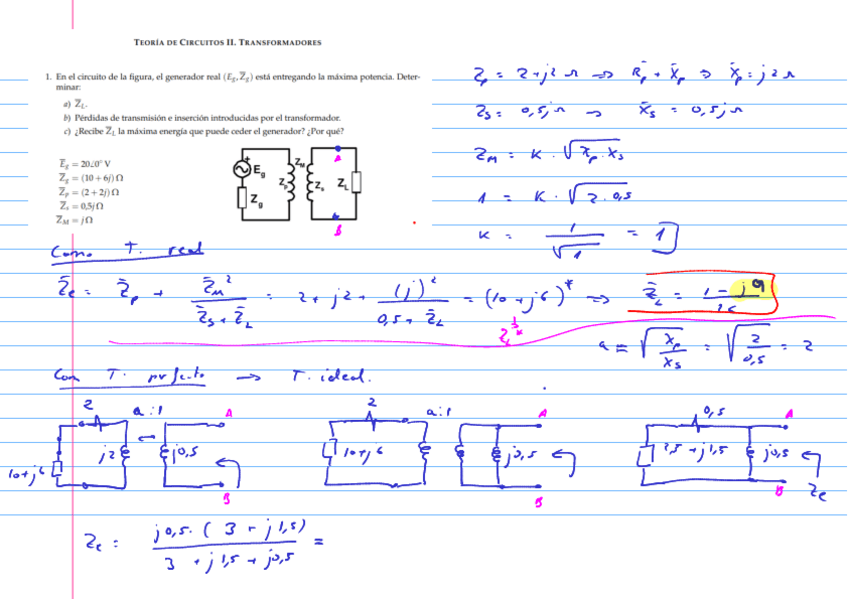 TEORÍA DE CIRCUITOS II. TRANSFORMADORES
1. En el circuito de la figura, el generador real (E̅g, Z̅g) está entregando la máxima potencia. Deter-
minar:
a) Z̅L.
b) Pérdidas de transmisión e inserción introducidas por el transformador.
c) ¿Recibe Z̅L la máxima energía que puede ceder el generador? ¿Por qué?
E̅g = 20∠0° V
Z̅g = (10 + 6j) Ω
Z̅p = (2 + 2j) Ω
Z̅s = 0,5j Ω
Z̅M = jΩ
Eg
Zg
Zp
ZM
Zs
ZL
A
B
Zp = 2+j2 Ω => Rp + X̅p => X̅p = j2 Ω
Zs = 0,5j Ω => X̅s = 0,5j Ω
ZM = K · √(Xp · Xs)
1 = K · √(2 · 0,5)
K = 1/√1 = 1
Como T. real
Z̅e = Z̅p + Z̅M²/(Z̅s + Z̅L) = 2 + j2 + (j)²/(0,5 + Z̅L) = (10 + j6)* => Z̅L = (1 - j9)/16
Zg*
a = √(Xp/Xs) = √(2/0,5) = 2
Con T. perfecto -> T. ideal.
2 a:1 A
10+j6 j2 j0,5
B
2 a:1 A
10+j6 j0,5
B
0,5 A
2,5 + j1,5 j0,5
B Ze
Ze = j0,5 · (3 + j1,5) / (3 + j1,5 + j0,5) =